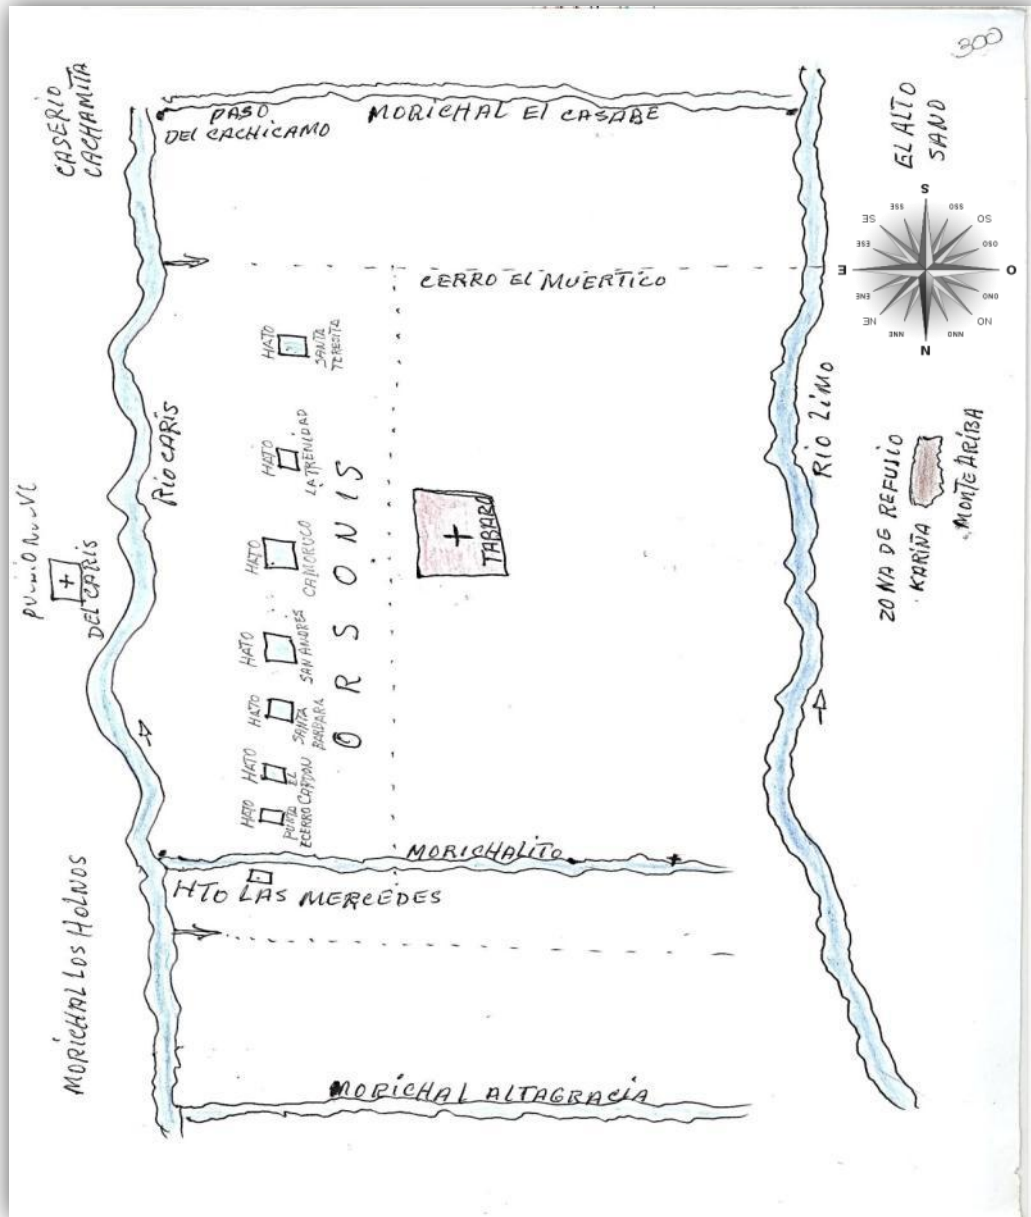 300
CASERIO
CACHAMITA
PASO
DEL CACHICAMO
MORICHAL El CASABE
EL ALTO
SAND
S
SSE
SSO
SE
SO
ESE
OSO
E
O
ENE
ONO
NE
NO
NNE
NNO
N
CERRO EL MUERTICO
HATO
SANTA
TERESITA
RIO CARIS
HATO
LA TRENIDAD
HATO
CAMORUCO
HATO
SAN ANDRES
HATO
SANTA
BARBARA
HATO
EL
CARDON
HATO
PUNTA
ECERRO
ORSONIS
TABARO
DEL CARIS
RIO LIMO
ZONA DE REFUSIO
KARIÑA
MONTE ARIBA
MORICHALITO
HTO LAS MERCEDES
MORICHAL LOS HOLNOS
MORICHAL ALTAGRACIA